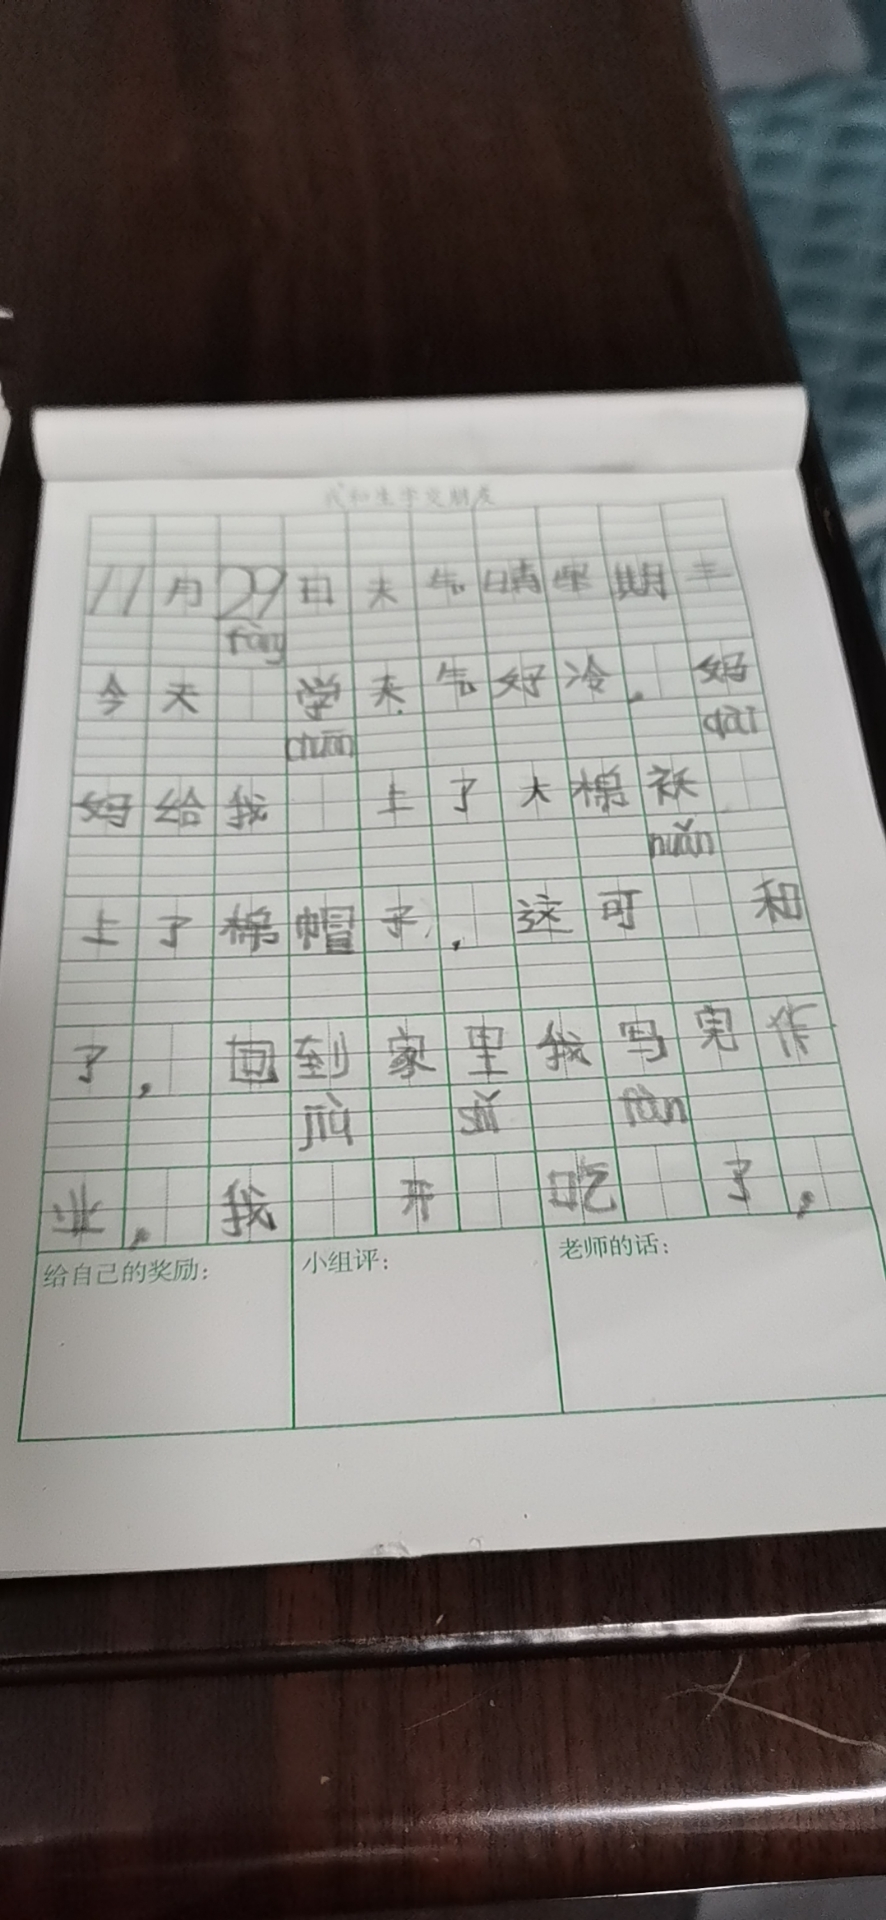 我和生字交朋友
11月29日天气晴星期三
fàng
今天 学天气好冷，妈
chuān dài
妈给我 上了大棉袄
nuǎn
上了棉帽子，这可 和
了，回到家里我写完作
jiù shǐ fàn
业，我 开 吃 了，
给自己的奖励： 小组评： 老师的话：